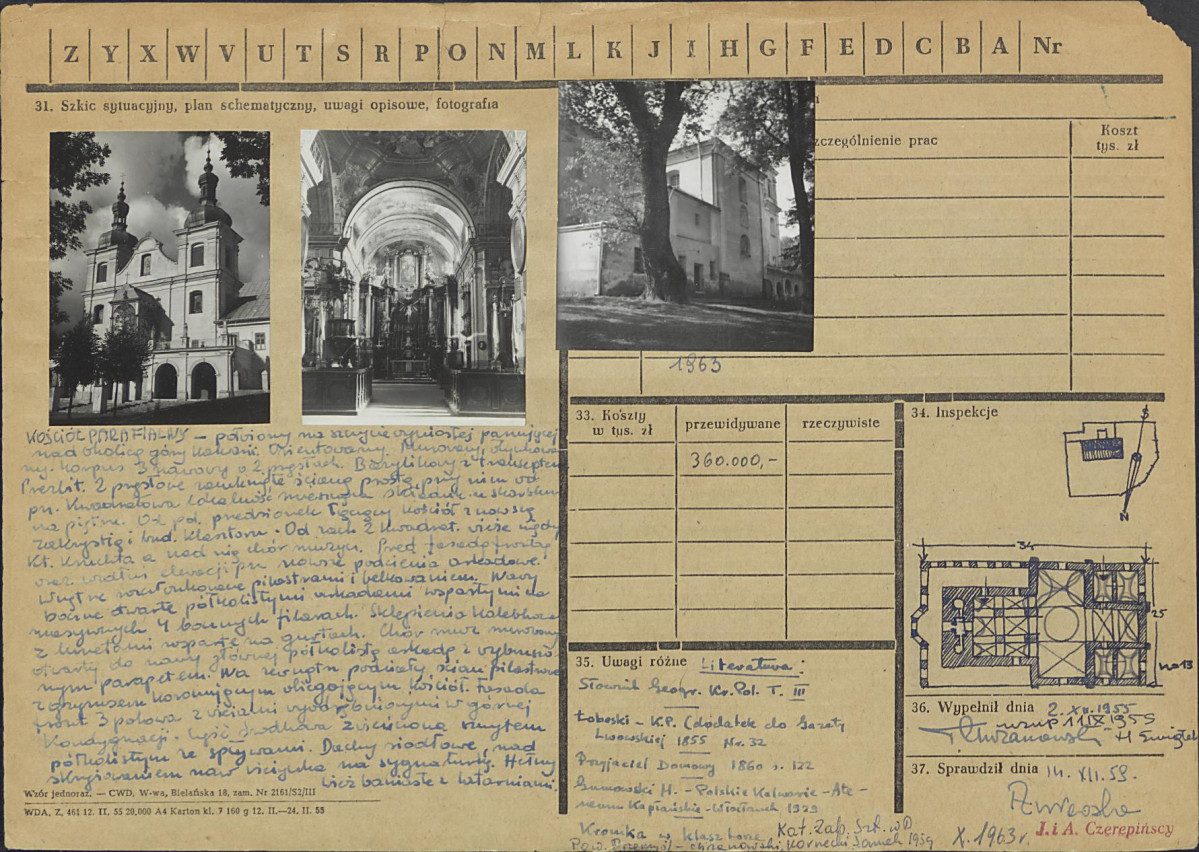 Z Y X W V U T S R P O N M L K J I H G F E D C B A Nr
31. Szkic sytuacyjny, plan schematyczny, uwagi opisowe, fotografia
zczególnienie prac
Koszt
tys. zł
1963
KOŚCIÓŁ PARAFIALNY – położony na szczycie wyniosłej panującej
nad okolicą góry Kalwarii. Orientowany. Murowany,
korpus 3 nawowy o 2 przęsłach. Bazylikowy z transeptem
Prezbit. 2 przęsłowe zamknięte ścianą prostą, przy nim od
pn. Kwadratowa
na piętrze. Od pd. przedsionek łączący kościół z nowszą
zakrystią i bud. klasztoru. Od zach 2 kwadrat. wieże między
Kt. kruchta a nad nią chór muzycz. Przed fasadą frontową
oraz wzdłuż elewacji pn nowsze podcienia arkadowe.
Wnętrze rozczłonkowane pilastrami i belkowaniem. Nawy
boczne otwarte półkolistymi arkadami wspartymi na
masywnych, 4 bocznych filarach. Sklepienia kolebkowe
z lunetami wsparte na gurtach. Chór muz. murowany
otwarty do nawy głównej półkolistą arkadą z wybrzuszo-
nym parapetem. Na zewnątrz podziały ścian pilastrowe
z gzymsem koronującym obiegającym kościół. Fasada
front 3 polowa z wieżami wyodrębnionymi w górnej
Kondygnacji. Część środkowa zwieńczona szczytem
półkolistym ze spływami. Dachy siodłowe, nad
skrzyżowaniem naw wieżyczka na sygnaturkę. Hełmy
wież baniaste z latarniami.
Wzór jednoraz. — CWD, W-wa, Bielańska 18, zam. Nr 2161/S2/III
WDA. Z. 461 12. II. 55 20,000 A4 Karton kl. 7 160 g 12. II.—24. II. 55
33. Koszty
w tys. zł
przewidywane
rzeczywiste
360.000,-
34. Inspekcje
S
N
34
25
35. Uwagi różne Literatura:
Słownik Geogr. Kr. Pol. T. III
Łobeski – K.P. (dodatek do Gazety
Lwowskiej 1855 Nr. 32
Przyjaciel Domowy 1860 s. 122
M. – Polskie Kalwarie – Ate-
neum Kapłańskie – Włocławek
Kronika w klasztorze, Kat. Zab. Szt. w P.
Pow. Przemyśl – Chrzanowski, Kornecki, Samek
36. Wypełnił dnia 2. XII. 1955
11 IX 1955
T. Chrzanowski
37. Sprawdził dnia 14. XII. 59.
X. 1963 r. J. i A. Czerepińscy